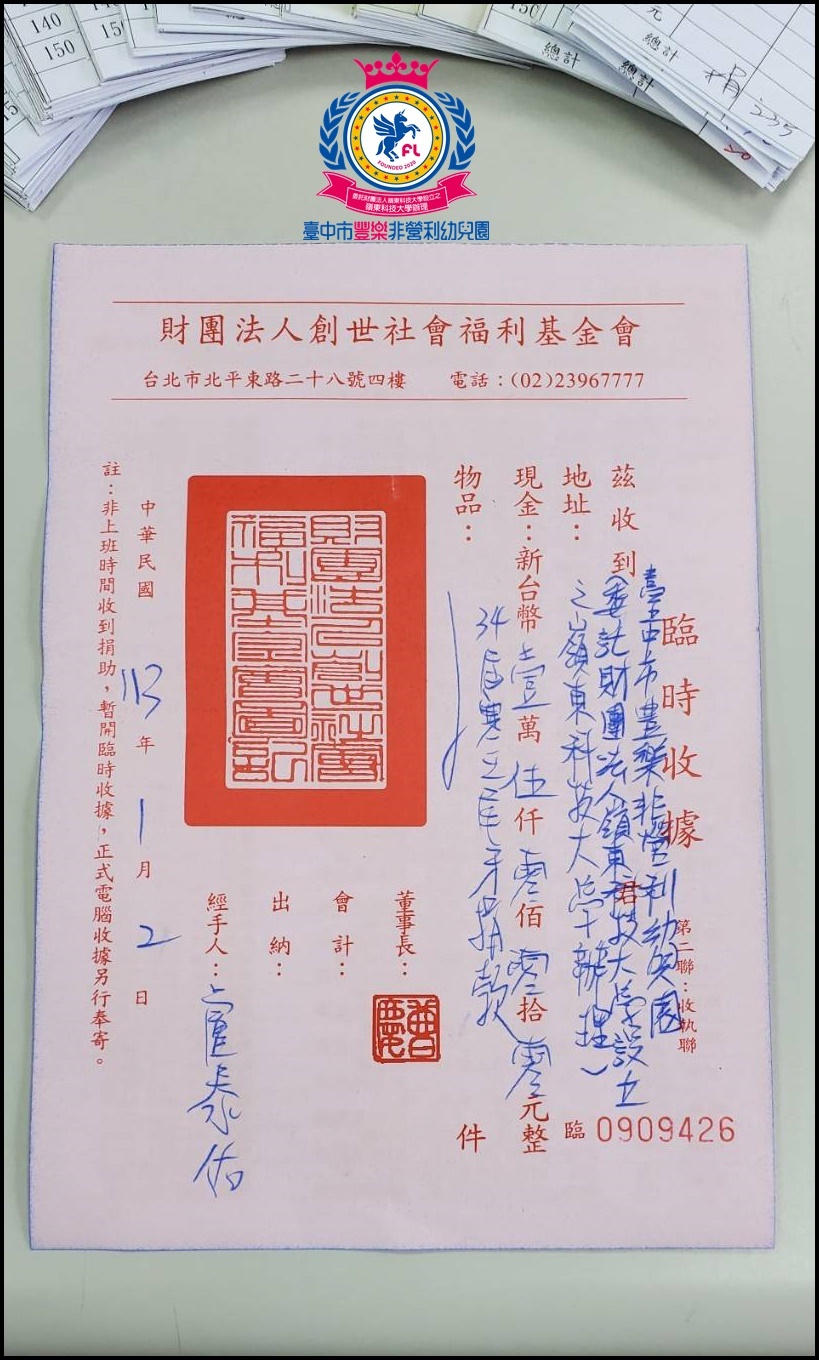 140
150
150
150
元
總計
總計
總計
捐
235
FL
FOUNDED 2020
委託財團法人嶺東科技大學設立之
嶺東科技大學辦理
臺中市豐樂非營利幼兒園
財團法人創世社會福利基金會
台北市北平東路二十八號四樓 電話：(02)23967777
臨時收據
第二聯：收執聯
茲收到
臺中市豐樂非營利幼兒園
(委託財團法人嶺東科技大學設立
之嶺東科技大學辦理)
君
地址：
現金：新台幣壹萬伍仟零佰零拾零元整
物品：
34屆寒士尾牙捐款
件
臨 0909426
財團法人創世社會
福利基金會圖記
董事長：
會計：
出納：
經手人：盧泰佑
中華民國 113 年 1 月 2 日
註：非上班時間收到捐助，暫開臨時收據，正式電腦收據另行奉寄。